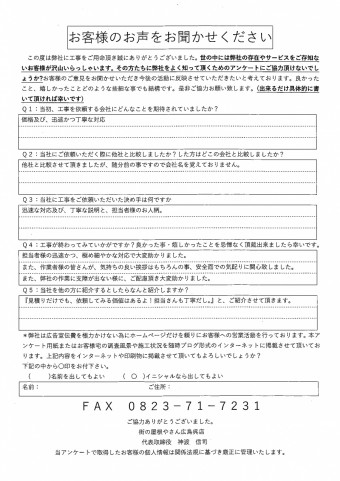 お客様のお声をお聞かせください
この度は弊社に工事をご用命頂き誠にありがとうございました。世の中には弊社の存在やサービスをご存知な
いお客様が沢山いらっしゃいます。その方たちに弊社をよく知って頂くためのアンケートにご協力頂けないでし
ょうか?お客様のご意見をお聞かせいただき今後の活動に反映させていただきたいと考えております。良かった
こと、嬉しかったことどのような些細な事でも結構です。是非ご協力お願い致します。(出来るだけ具体的に書
いて頂ければ幸いです)
Q1:当初、工事を依頼する会社にどんなことを期待されていましたか?
価格及び、迅速かつ丁寧な対応
Q2:当社にご依頼いただく際に他社と比較しましたか?した方はどこの会社と比較しましたか?
他社と比較させて頂きましたが、随分前の事ですので会社名を覚えておりません。
Q3:当社に工事をご依頼いただいた決め手は何ですか
迅速な対応及び、丁寧な説明と、担当者様のお人柄。
Q4:工事が終わってみていかがですか?良かった事・嬉しかったことを忌憚なく頂戴出来ましたら幸いです。
担当者様の迅速かつ、極め細やかな対応で大変助かりました。
また、作業者様の皆さんが、気持ちの良い挨拶はもちろんの事、安全面での気配りに関心致しました。
また、弊社の作業に支障が出ない様に、ご配慮頂き大変助かりました。
Q5:当社を他の方に紹介するとしたらなんと紹介しますか?
『見積りだけでも、依頼してみる価値はあるよ!担当さんも丁寧だし。』と、ご紹介させて頂きます。
*弊社は広告宣伝費を極力かけない為にホームページだけを頼りにお客様への営業活動を行っております。本ア
ンケート用紙またはお客様宅の調査風景や施工状況を随時ブログ形式のインターネットに掲載させて頂いてお
ります。上記内容をインターネットや印刷物に掲載させて頂いてもよろしいでしょうか?
下記の中から〇印をお付下さい。
( )名前を出してもよい ( 〇 )イニシャルなら出してもよい
名前: ご住所:
FAX 0823-71-7231
ご協力ありがとうございました。
街の屋根やさん広島呉店
代表取締役 神渡 信司
当アンケートで取得したお客様の個人情報は関係法規に基づき厳正に管理いたします。